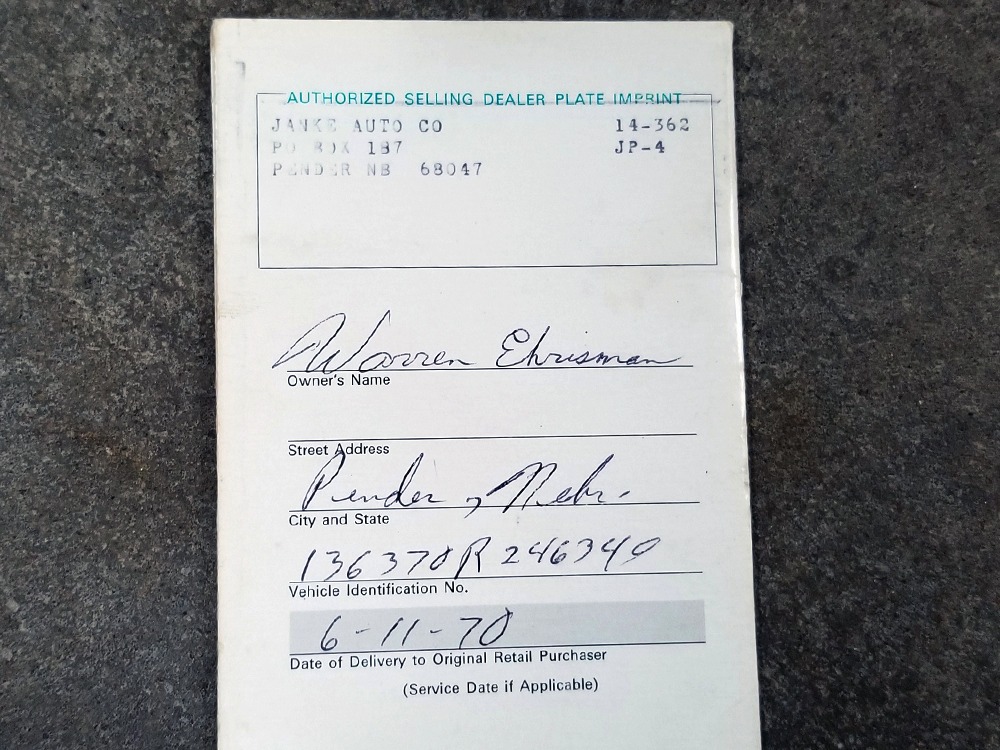 AUTHORIZED SELLING DEALER PLATE IMPRINT
JANKE AUTO CO 14-362
PO BOX 187 JP-4
PENDER NB 68047
Warren Ehrisman
Owner's Name
Street Address
Pender, Nebr.
City and State
136370R246340
Vehicle Identification No.
6-11-70
Date of Delivery to Original Retail Purchaser
(Service Date if Applicable)